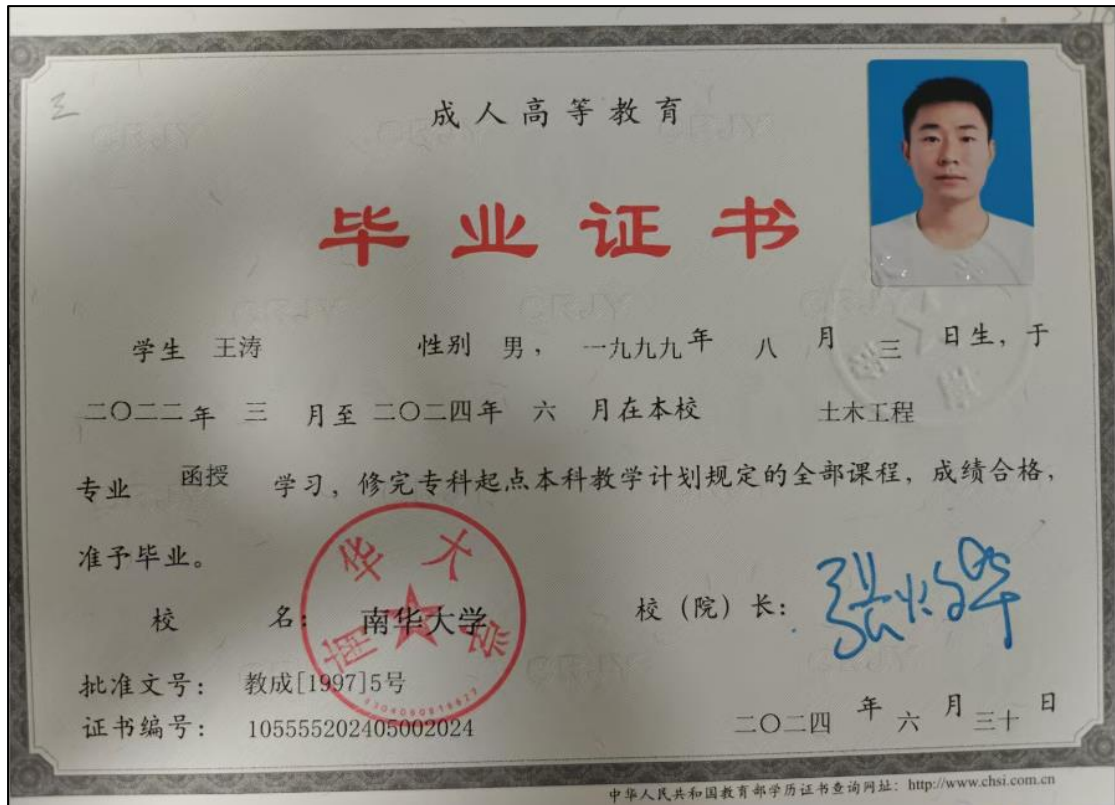 成人高等教育
毕业证书
学生 王涛 性别 男， 一九九九年 八 月 三 日生，于
二〇二二年 三 月至 二〇二四年 六 月在本校 土木工程
专业 函授 学习，修完专科起点本科教学计划规定的全部课程，成绩合格，
准予毕业。
校 名： 南华大学 校（院）长：
南华大学
批准文号： 教成[1997]5号
证书编号： 105555202405002024 二〇二四 年 六 月 三十 日
中华人民共和国教育部学历证书查询网址：http://www.chsi.com.cn